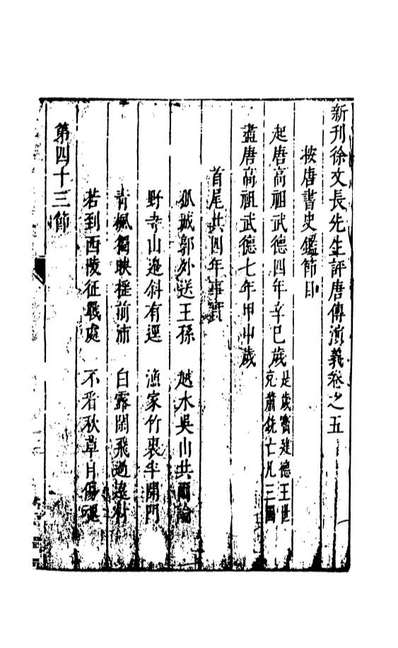 新刊徐文長先生評唐傳演義卷之五
按唐書史鑑節目
起唐高祖武德四年辛巳歲 是歲竇建德王世充蕭銑亡凡三國
盡唐高祖武德七年甲申歲
首尾共四年事實
孤城郭外送王孫 越水吳山共爾論
野寺山邊斜有逕 漁家竹裏半開門
青楓獨映搖前浦 白鷺閒飛過遠村
若到西陵征戰處 不看秋草自傷魂
第四十三節